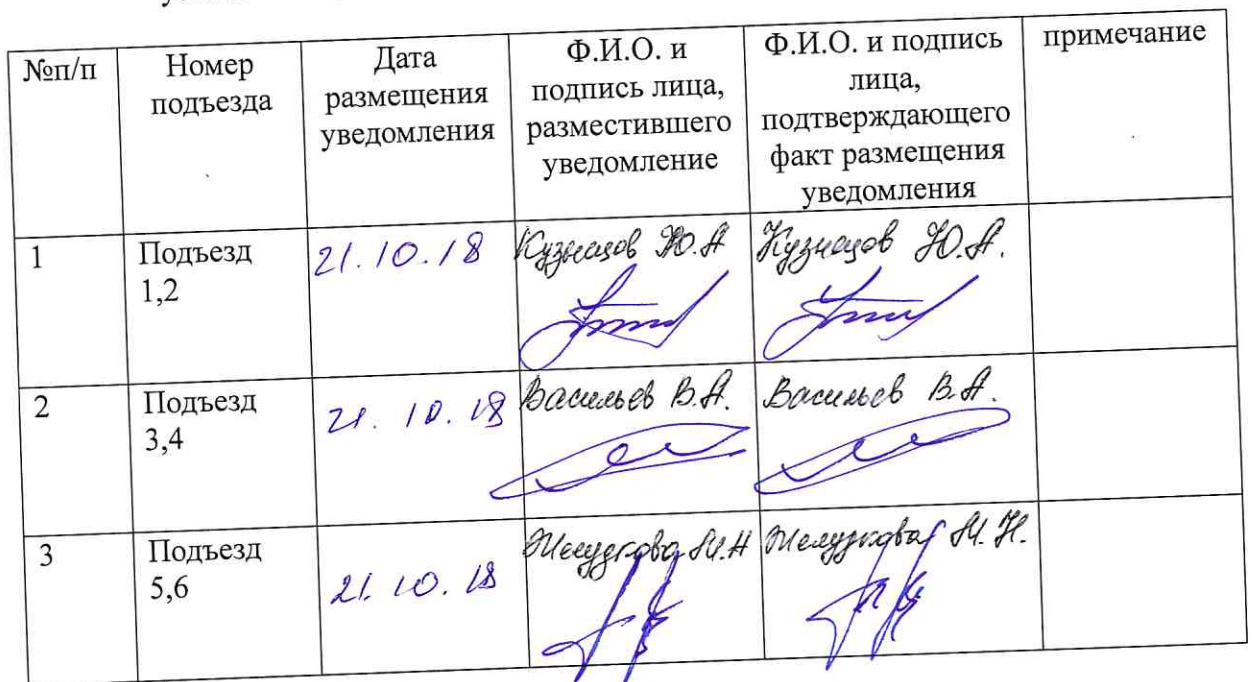 №п/п
Номер
подъезда
Дата
размещения
уведомления
Ф.И.О. и
подпись лица,
разместившего
уведомление
Ф.И.О. и подпись
лица,
подтверждающего
факт размещения
уведомления
примечание
1
Подъезд
1,2
21.10.18
Кузнецов Ю.А
Кузнецов Ю.А.
2
Подъезд
3,4
21.10.18
Васильев В.А.
Васильев В.А.
3
Подъезд
5,6
21.10.18
М.Н
М.Н.